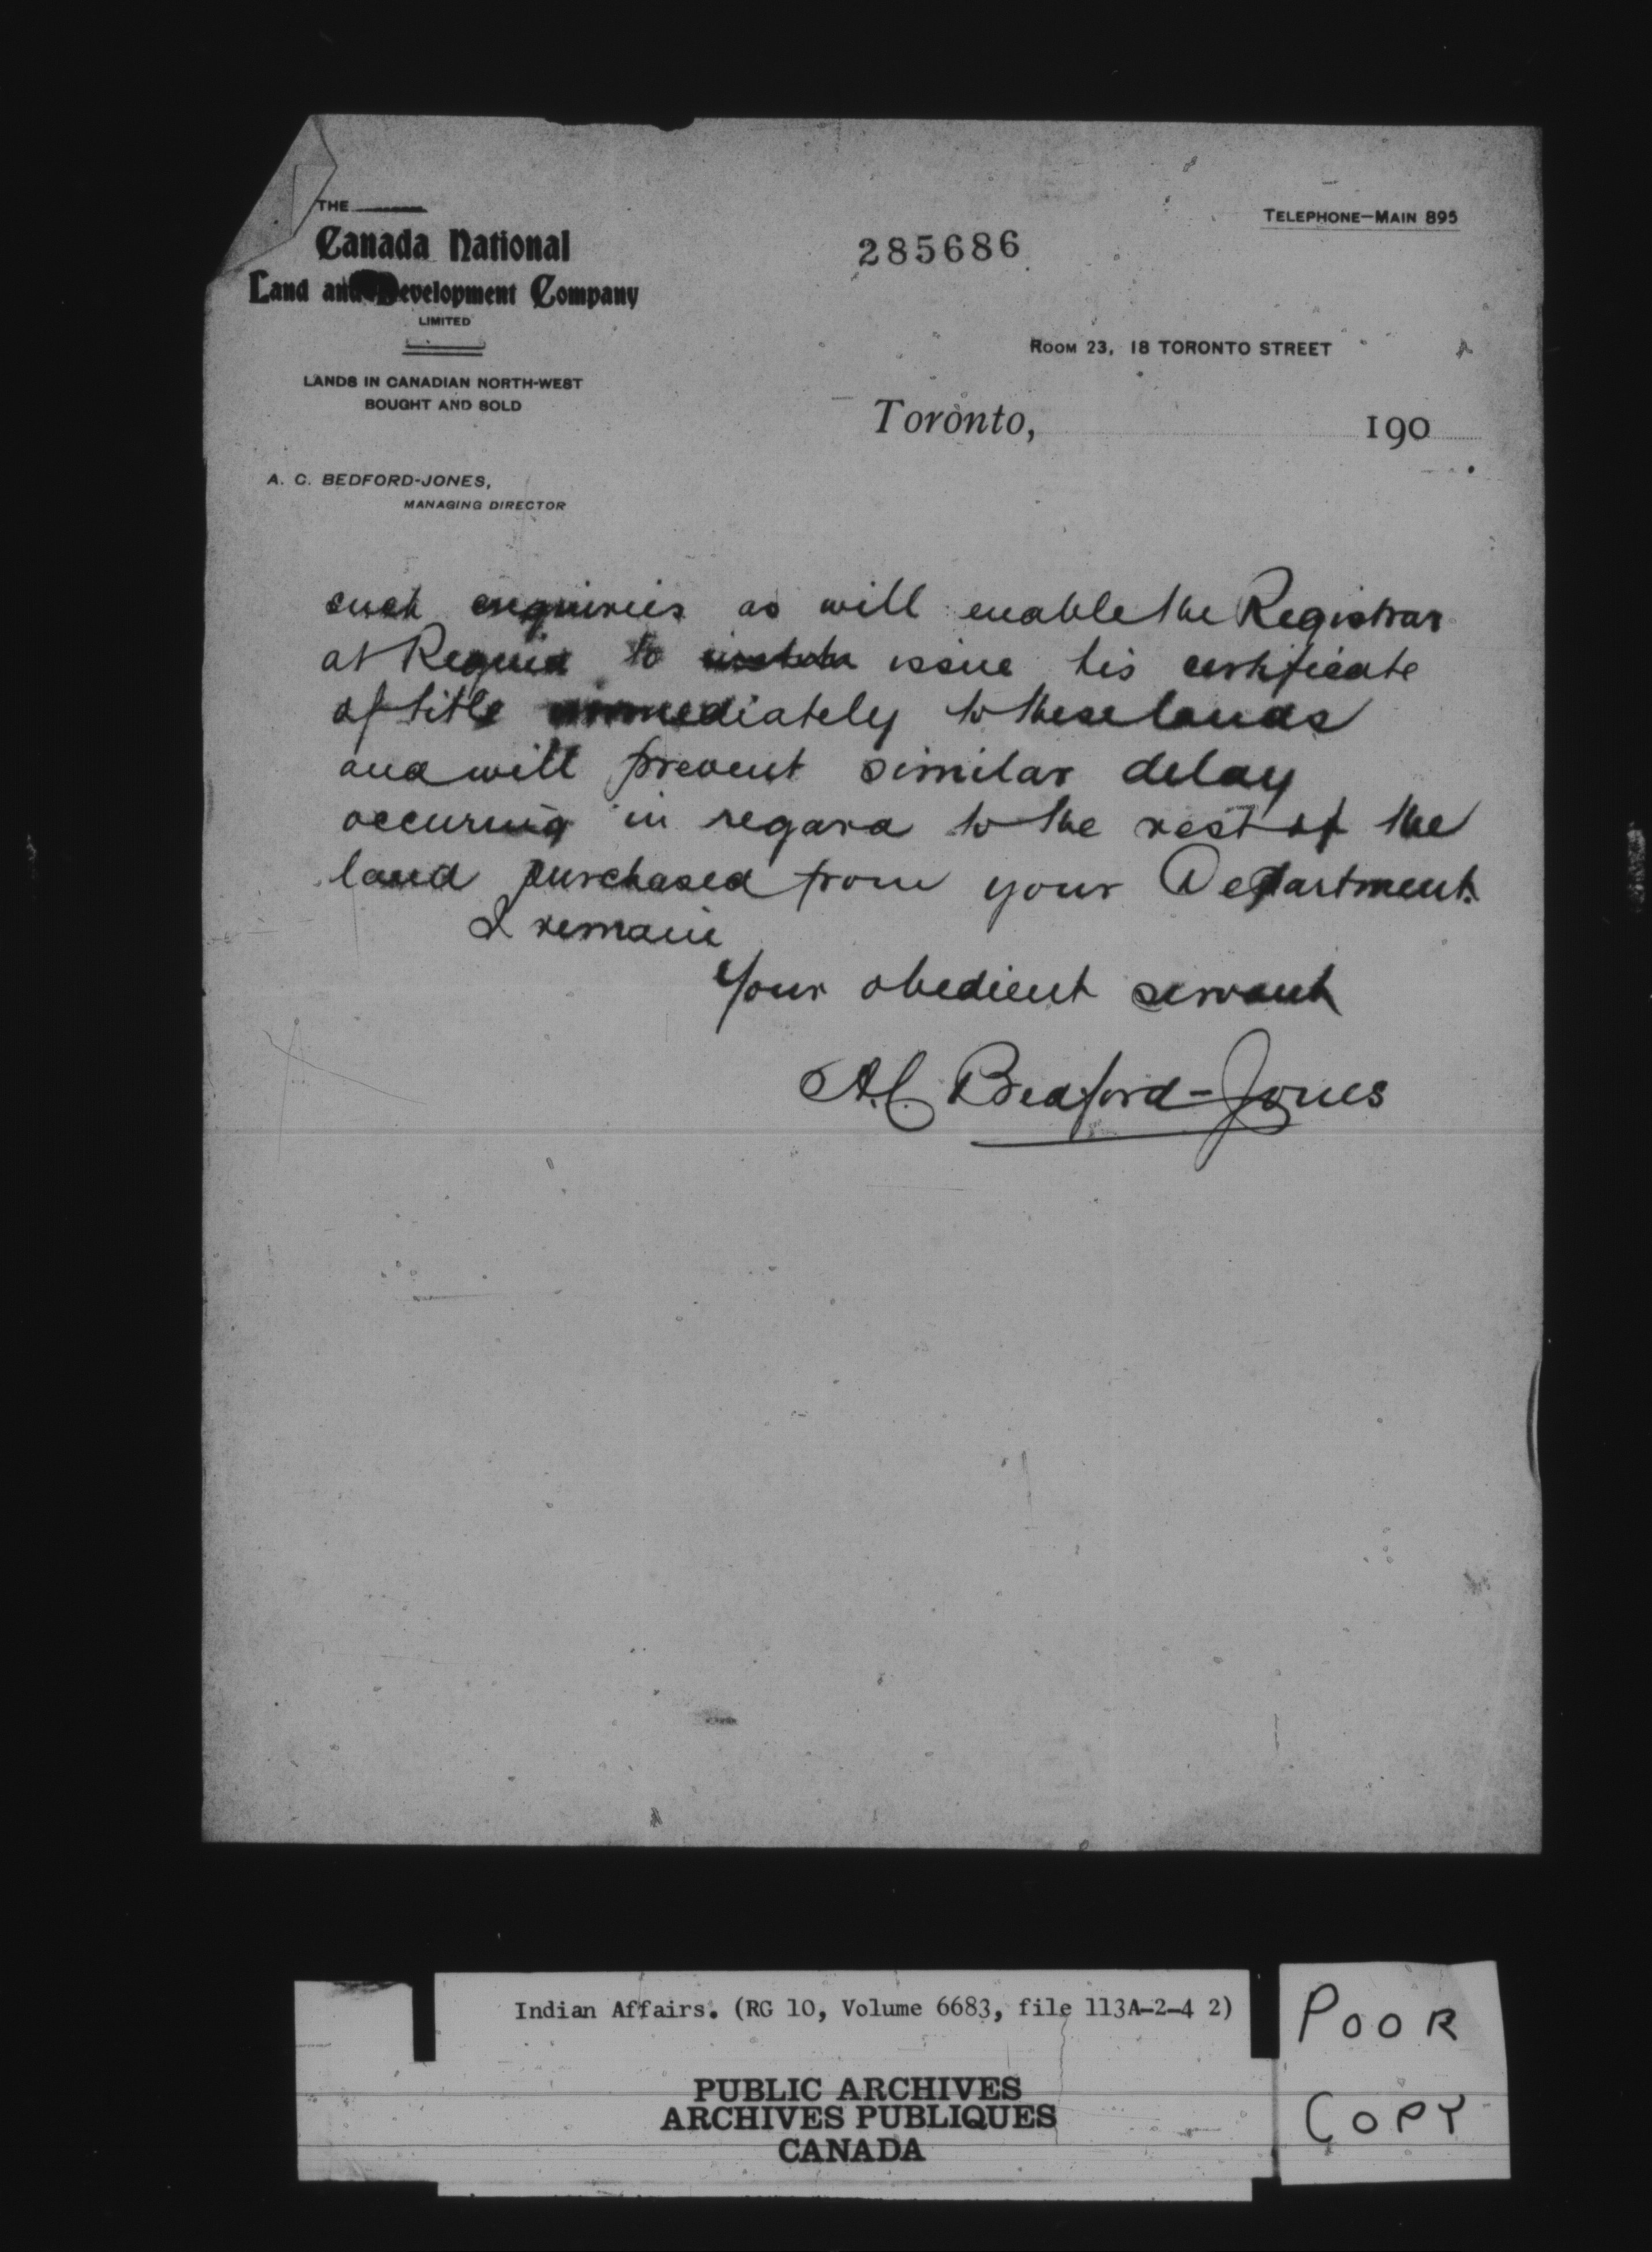 THE
Canada National
Land and Development Company
LIMITED
LANDS IN CANADIAN NORTH-WEST
BOUGHT AND SOLD
A. C. BEDFORD-JONES,
MANAGING DIRECTOR
285686
TELEPHONE-MAIN 895
ROOM 23, 18 TORONTO STREET
Toronto, 190
such enquiries as will enable the Registrar
at Regina to issue his certificate
of title immediately to these lands
and will prevent similar delay
occuring in regard to the rest of the
land purchased from your Department.
I remain
Your obedient servant
A.C. Bedford-Jones
Indian Affairs. (RG 10, Volume 6683, file 113A-2-4 2)
PUBLIC ARCHIVES
ARCHIVES PUBLIQUES
CANADA
POOR
COPY